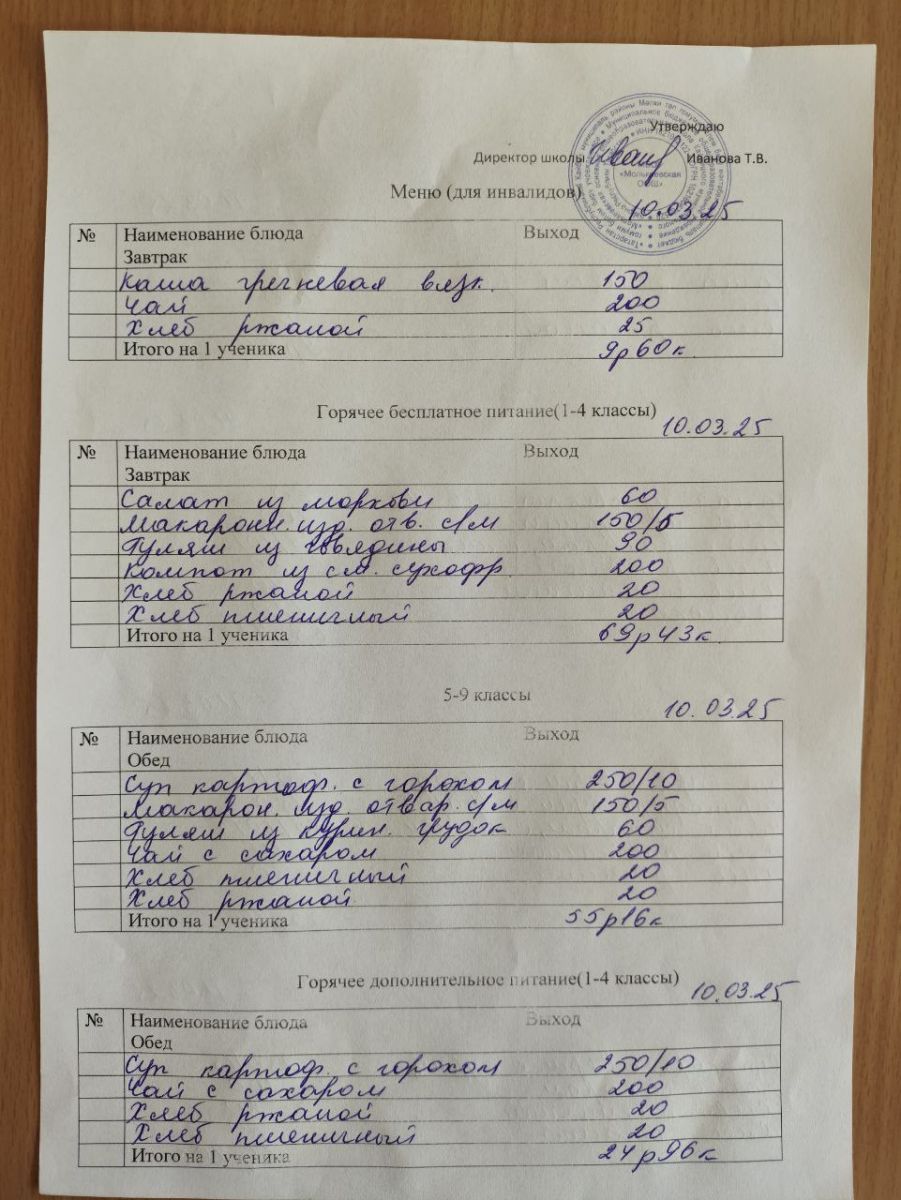 Утверждаю
Директор школы Иванова Т.В.
«Молькеевская ООШ»
Меню (для инвалидов)
10.03.25
№ Наименование блюда Выход
Завтрак
Каша гречневая вязк. 150
Чай 200
Хлеб ржаной 25
Итого на 1 ученика 9р60к.
Горячее бесплатное питание(1-4 классы)
10.03.25
№ Наименование блюда Выход
Завтрак
Салат из моркови 60
Макарон. изд. отв. с/м 150/5
Гуляш из говядины 90
Компот из см. сухофр. 200
Хлеб ржаной 20
Хлеб пшеничный 20
Итого на 1 ученика 69р43к.
5-9 классы
10.03.25
№ Наименование блюда Выход
Обед
Суп картоф. с горохом 250/10
Макарон. изд. отвар. с/м 150/5
Гуляш из курин. грудок 60
Чай с сахаром 200
Хлеб пшеничный 20
Хлеб ржаной 20
Итого на 1 ученика 55р16к
Горячее дополнительное питание(1-4 классы)
10.03.25
№ Наименование блюда Выход
Обед
Суп картоф. с горохом 250/10
Чай с сахаром 200
Хлеб ржаной 20
Хлеб пшеничный 20
Итого на 1 ученика 24р96к